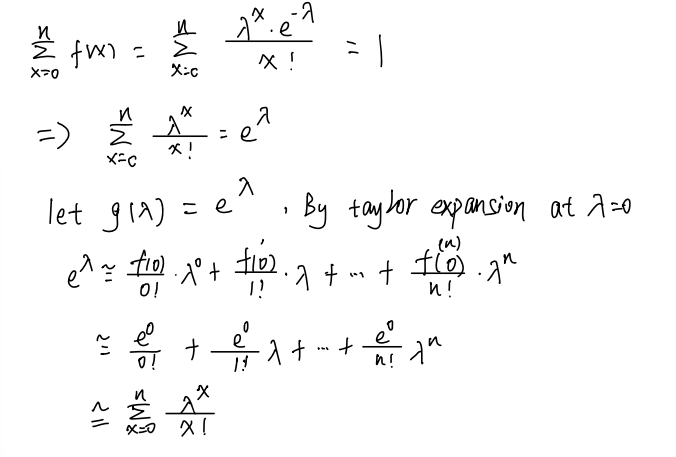 \sum_{x=0}^{n} f(x) = \sum_{x=0}^{n} \frac{\lambda^x \cdot e^{-\lambda}}{x!} = 1
=> \sum_{x=0}^{n} \frac{\lambda^x}{x!} = e^{\lambda}
let g(λ) = e^{\lambda} , By taylor expansion at λ=0
e^{\lambda} \cong \frac{f(0)}{0!} \cdot \lambda^0 + \frac{f'(0)}{1!} \cdot \lambda + \cdots + \frac{f^{(n)}(0)}{n!} \cdot \lambda^n
\cong \frac{e^0}{0!} + \frac{e^0}{1!} \lambda + \cdots + \frac{e^0}{n!} \lambda^n
\cong \sum_{x=0}^{n} \frac{\lambda^x}{x!}